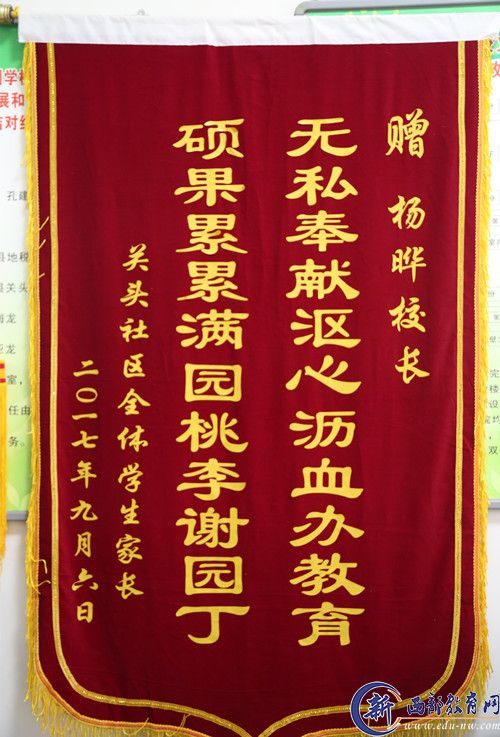 赠 杨晔校长
无私奉献沤心沥血办教育
硕果累累满园桃李谢园丁
关头社区全体学生家长
二〇一七年九月六日
新 西部教育网
www.edu-nw.com